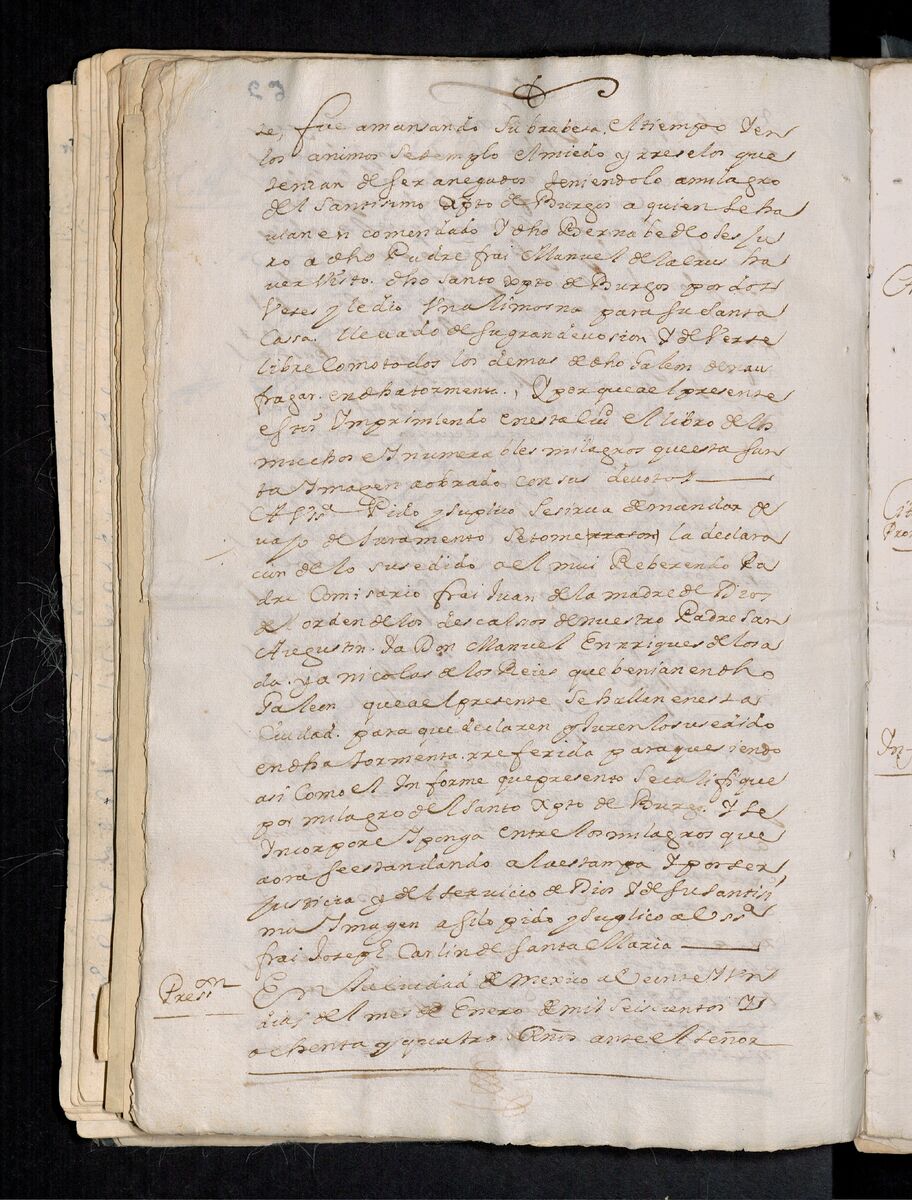 se fue amansando subrabesa el tiempo Yen
los animos setemplo el miedo y rreselos que
tenian de ser anegados teniendolo a milagro
del Santissimo Xpto de Burgos a quien seha
uian en comendado Y dho Bernabe
ro a dho Padre frai Manuel de la crus ha
ver Visto dho santo Xpto de Burgos por dos
veses y ledio Una limosna para su santa
Casa lleuado de su gran deuosion Y de Verse
libre Como todos los demas de dho Galeon de nau
fragar en dha tormenta, Y por que a el presente
esta Ymprimiendo en esta Ciud el libro de los
muchos e Ynumerables milagros que esta san
ta Ymagen a obrado con sus deuotos
A Vss.a Pido y suplico se sirua de mandar de
vajo de Juramento se tome la declara
cion de lo susedido a el mui Reberendo Pa
dre Comisario frai Juan de la madre de Dios
del orden de los descalsos de nuestro Padre san
Augustin. Ya Don Manuel Enrriques de losa
da. ya nicolas de los Reies que benian en dho
Galeon que a el presente se hallan en esta
Ciudad. para que declaren y Juren lo susedido
en dha tormenta rreferida para que siendo
asi Como el Informe que presento se califique
por milagro del santo Xpto de Burgos. Y se
Yncorpore Y ponga entre los milagros que
aora se estan dando a la estampa Y por ser
Justicia y del seruicio de Dios Y de su santisi
ma Ymagen asi lo pido y suplico a Vss.a
frai Joseph Carlin de santa Maria
Pres.on
En la ciudad de mexico a Veinte Y un
dias del mes de Enero de mil seiscientos Y
ochenta y quatro Años ante el señor